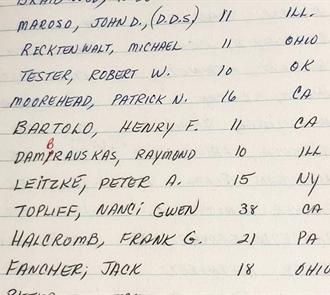 MAROSO, JOHN D., (D.D.S) 11 ILL.
RECKTENWALT, MICHAEL 11 OHIO
TESTER, ROBERT W. 10 OK
MOOREHEAD, PATRICK N. 16 CA
BARTOLO, HENRY F. 11 CA
DAMBRAUSKAS, RAYMOND 10 ILL
LEITZKÉ, PETER A. 15 NY
TOPLIFF, NANCI GWEN 38 CA
HALCROMB, FRANK G. 21 PA
FANCHER, JACK 18 OHIO